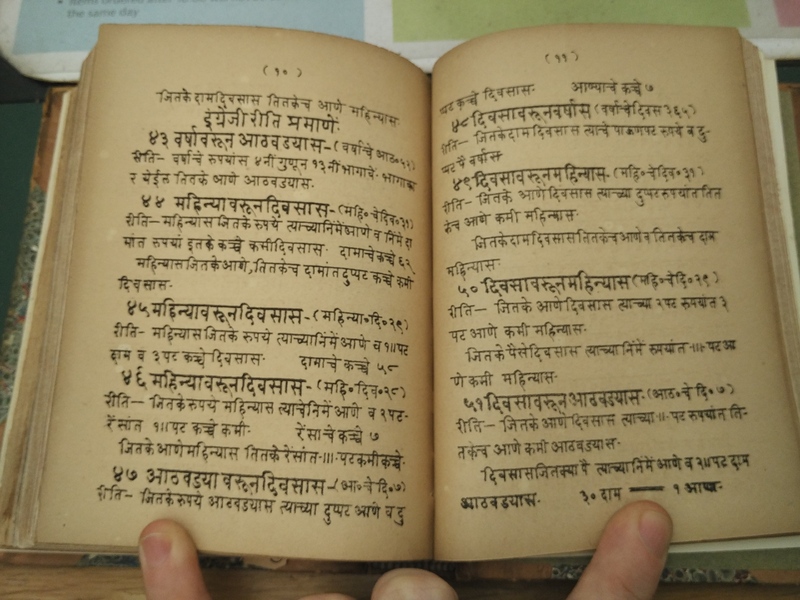 the same day
( १० )
जितके दाम दिवसास तितकेच आणे महिन्यास
इंग्रेजी रीति प्रमाणें.
४३ वर्षावरून आठवडयास-(वर्षाचे आठ०५२)
रीति- वर्षाचे रुपयांस ४ नीं गुणून १३ नीं भागावे. भागाका
र येईल तितके आणे आठवडयास.
४४ महिन्यावरून दिवसास-(महि०चे दि०३१)
रीति- महिन्यास जितके रुपये त्याच्या निंमे आणे व निंमे दा
मांत रुपयां इतके कच्चे कमी दिवसास. दामाचे कच्चे ६२
महिन्यास जितके आणे, तितकेच दामांत दुप्पट कच्चे कमी
दिवसास.
४५ महिन्यावरून दिवसास-(महिन्या०दि०२९)
रीति- महिन्यास जितके रुपये त्याच्या निंमे आणे व १॥ पट
दाम व ३ पट कच्चे दिवसास. दामाचे कच्चे ५८
४६ महिन्यावरून दिवसास-(महि०दिव०२८)
रीति- जितके रुपये महिन्यास त्याचे निंमे आणे व २ पट-
रेंसांत १॥ पट कच्चे कमी. रेंसाचे कच्चे ७
जितके आणे महिन्यास तितके रेंसांत .॥. पट कमी कच्चे.
४७ आठवडया वरून दिवसास-(आ०चे दि०७)
रीति- जितके रुपये आठवडयास त्याच्या दुप्पट आणे व दु
( ११ )
प्पट कच्चे दिवसास. आण्याचे कच्चे ७
४८ दिवसावरून वर्षास (वर्षाचे दिवस ३६५)
रीति- जितके दाम दिवसास त्याचे पाऊणपट रुपये व दु-
प्पट पै वर्षास
४९ दिवसावरून महिन्यास-(महि०चे दि०३१)
रीति- जितके आणे दिवसास त्याच्या दुप्पट रुपयांत तित
केच आणे कमी महिन्यास.
जितके दाम दिवसास तितकेच आणे व तितकेच दाम
महिन्यास.
५० दिवसावरून महिन्यास (महि०चे दि०२९)
रीति- जितके आणे दिवसास त्याच्या २ पट रुपयांत ३
पट आणे कमी महिन्यास.
जितके पैसे दिवसास त्याच्या निंमे रुपयांत .॥. पट आ
णे कमी महिन्यास.
५१ दिवसावरून आठवडयास-(आठ०चे दि०७)
रीति- जितके आणे दिवसास त्याच्या .॥. पट रुपयांत ति-
तकेच आणे कमी आठवडयास.
दिवसास जितक्या पै त्याच्या निंमें आणे व २॥ पट दाम
आठवडयास. ३० दाम — १ आणा.